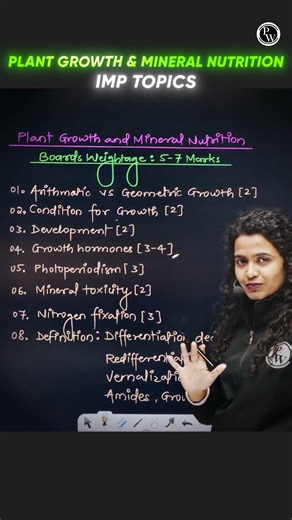 PW
PLANT GROWTH & MINERAL NUTRITION
IMP TOPICS
Plant Growth and Mineral Nutrition
Boards Weightage : 5-7 Marks
01. Arithmatic vs Geometric Growth [2]
02. Condition for Growth [2]
03. Development [2]
04. Growth hormones [3-4]
05. Photoperiodism [3]
06. Mineral toxicity [2]
07. Nitrogen fixation [3]
08. Definition : Differentiation, de
Redifferentia
Vernalizatio
Amides, Grow